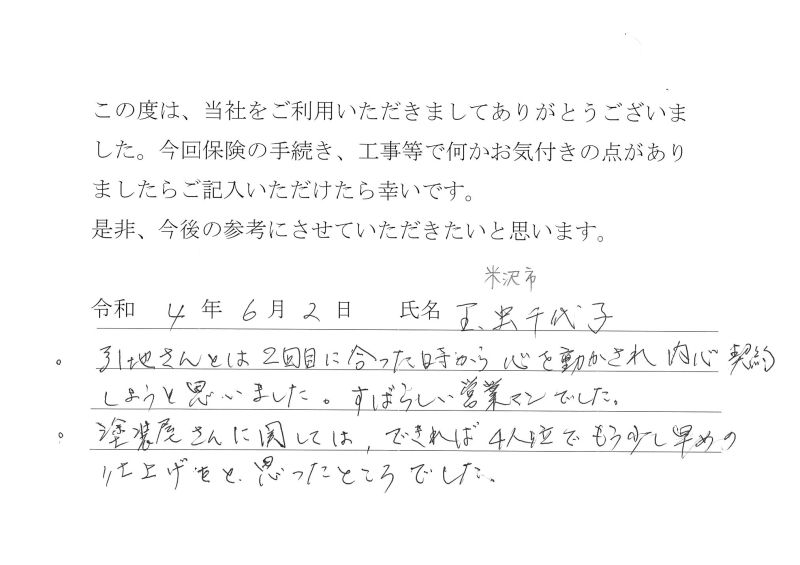 この度は、当社をご利用いただきましてありがとうございま
した。今回保険の手続き、工事等で何かお気付きの点があり
ましたらご記入いただけたら幸いです。
是非、今後の参考にさせていただきたいと思います。
米沢市
令和 4 年 6 月 2 日 氏名 玉虫千代子
。引地さんとは2回目に合った時から心を動かされ内心契約
しようと思いました。すばらしい営業マンでした。
。塗装屋さんに関しては,できれば4人位でもう少し早めの
仕上げをと思ったところでした。